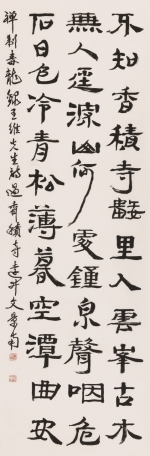 不知香積寺數里入雲峯古木
無人逕深山何處鐘泉聲咽危
石日色冷青松薄暮空潭曲安
禪制毒龍錄王維先生詩過香積寺